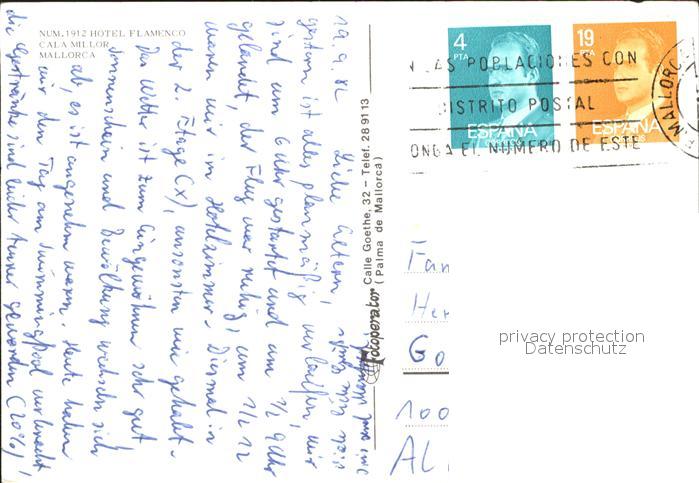 NUM. 1912 HOTEL FLAMENCO
CALA MILLOR
MALLORCA
19.9.82
Liebe Eltern,
gestern ist alles planmäßig verlaufen, wir
sind um 6 Uhr gestartet und um 1/2 9 Uhr
gelandet, der Flug war ruhig, um 1/2 12
waren wir im Hotelzimmer. Diesmal in
der 2. Etage (x), ansonsten wie gehabt.
Das Wetter ist zum Eingewöhnen sehr gut
Sonnenschein und Bewölkung wechseln sich
ab, es ist angenehm warm. Heute haben
wir den Tag am Swimmingpool verbracht
die Getränke sind leider teurer geworden (20%)!
Fotoperator Calle Goethe, 32 – Telef. 28 91 13
(Palma de Mallorca)
4
PTA
ESPAÑA
19
PTA
ESPAÑA
LAS POBLACIONES CON
DISTRITO POSTAL
ONGA EL NUMERO DE ESTE
MALLORC
Fam
Her
Go
100
AL
privacy protection
Datenschutz